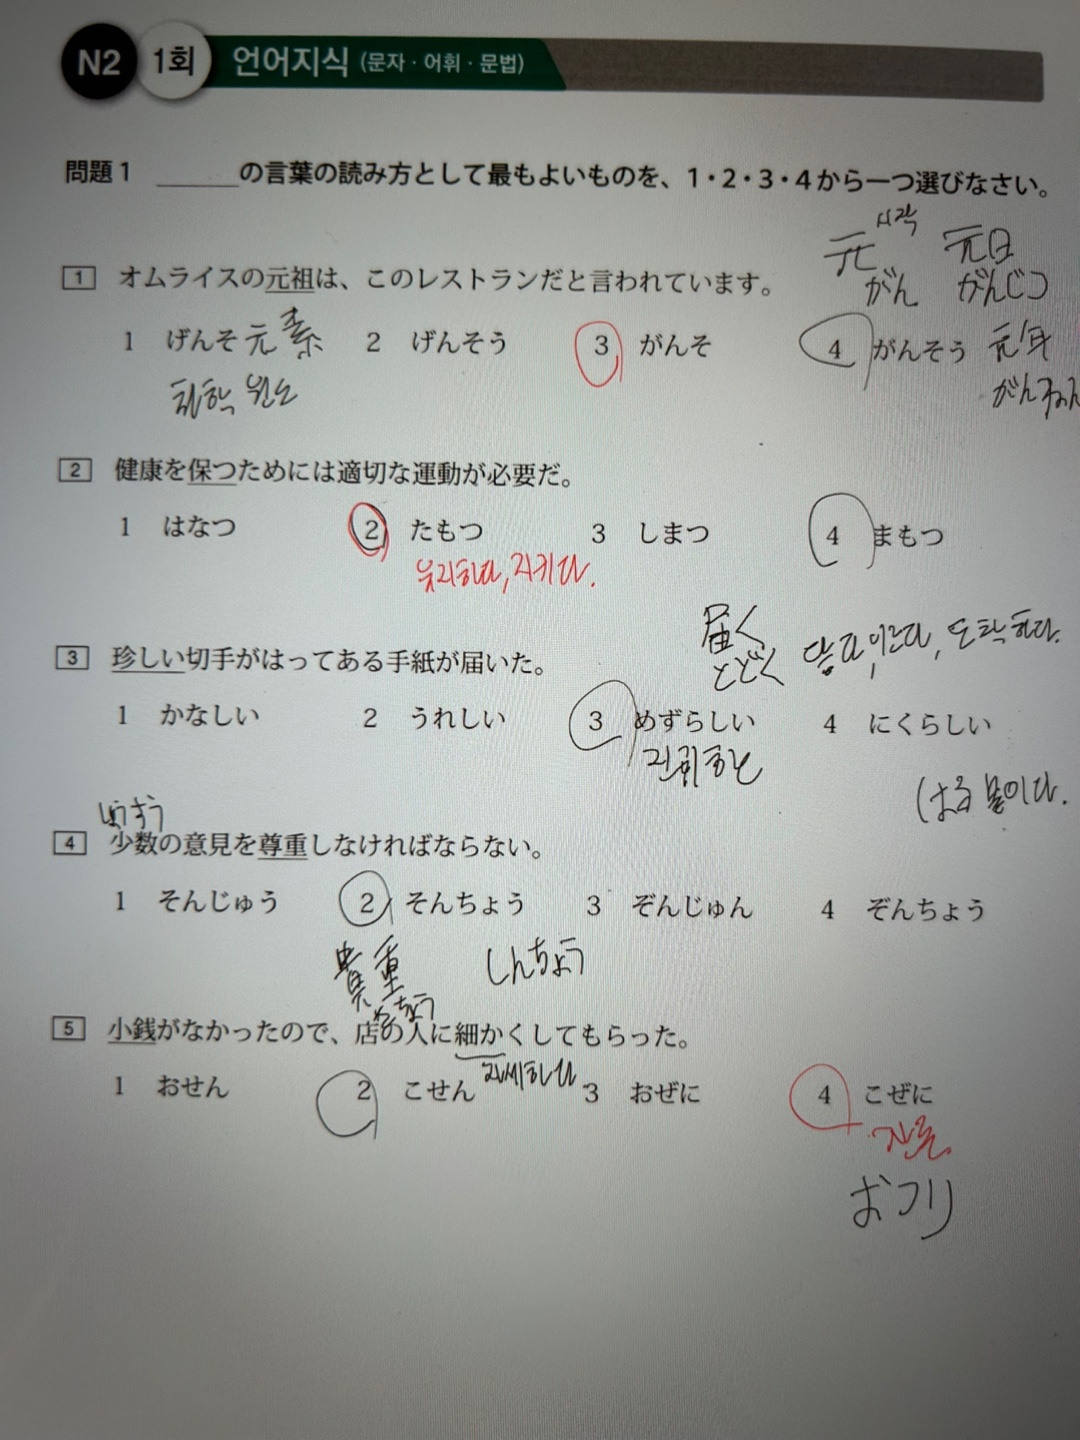 N2 1회 언어지식 (문자·어휘·문법)
問題1 ______の言葉の読み方として最もよいものを、1・2・3・4から一つ選びなさい。
시작
元 元日
がん がんじつ
1 オムライスの元祖は、このレストランだと言われています。
1 げんそ 元素 2 げんそう 3 がんそ 4 がんそう 元年
화학 원소 がんねん
2 健康を保つためには適切な運動が必要だ。
1 はなつ 2 たもつ 3 しまつ 4 まもつ
유지하다, 지키다.
届く
とどく 닿다, 이르다, 도착하다.
3 珍しい切手がはってある手紙が届いた。
1 かなしい 2 うれしい 3 めずらしい 4 にくらしい
はる 붙이다.
4 少数の意見を尊重しなければならない。
1 そんじゅう 2 そんちょう 3 ぞんじゅん 4 ぞんちょう
貴重 しんちょう
きちょう
5 小銭がなかったので、店の人に細かくしてもらった。
자세하다
1 おせん 2 こせん 3 おぜに 4 こぜに
잔돈.
おつり